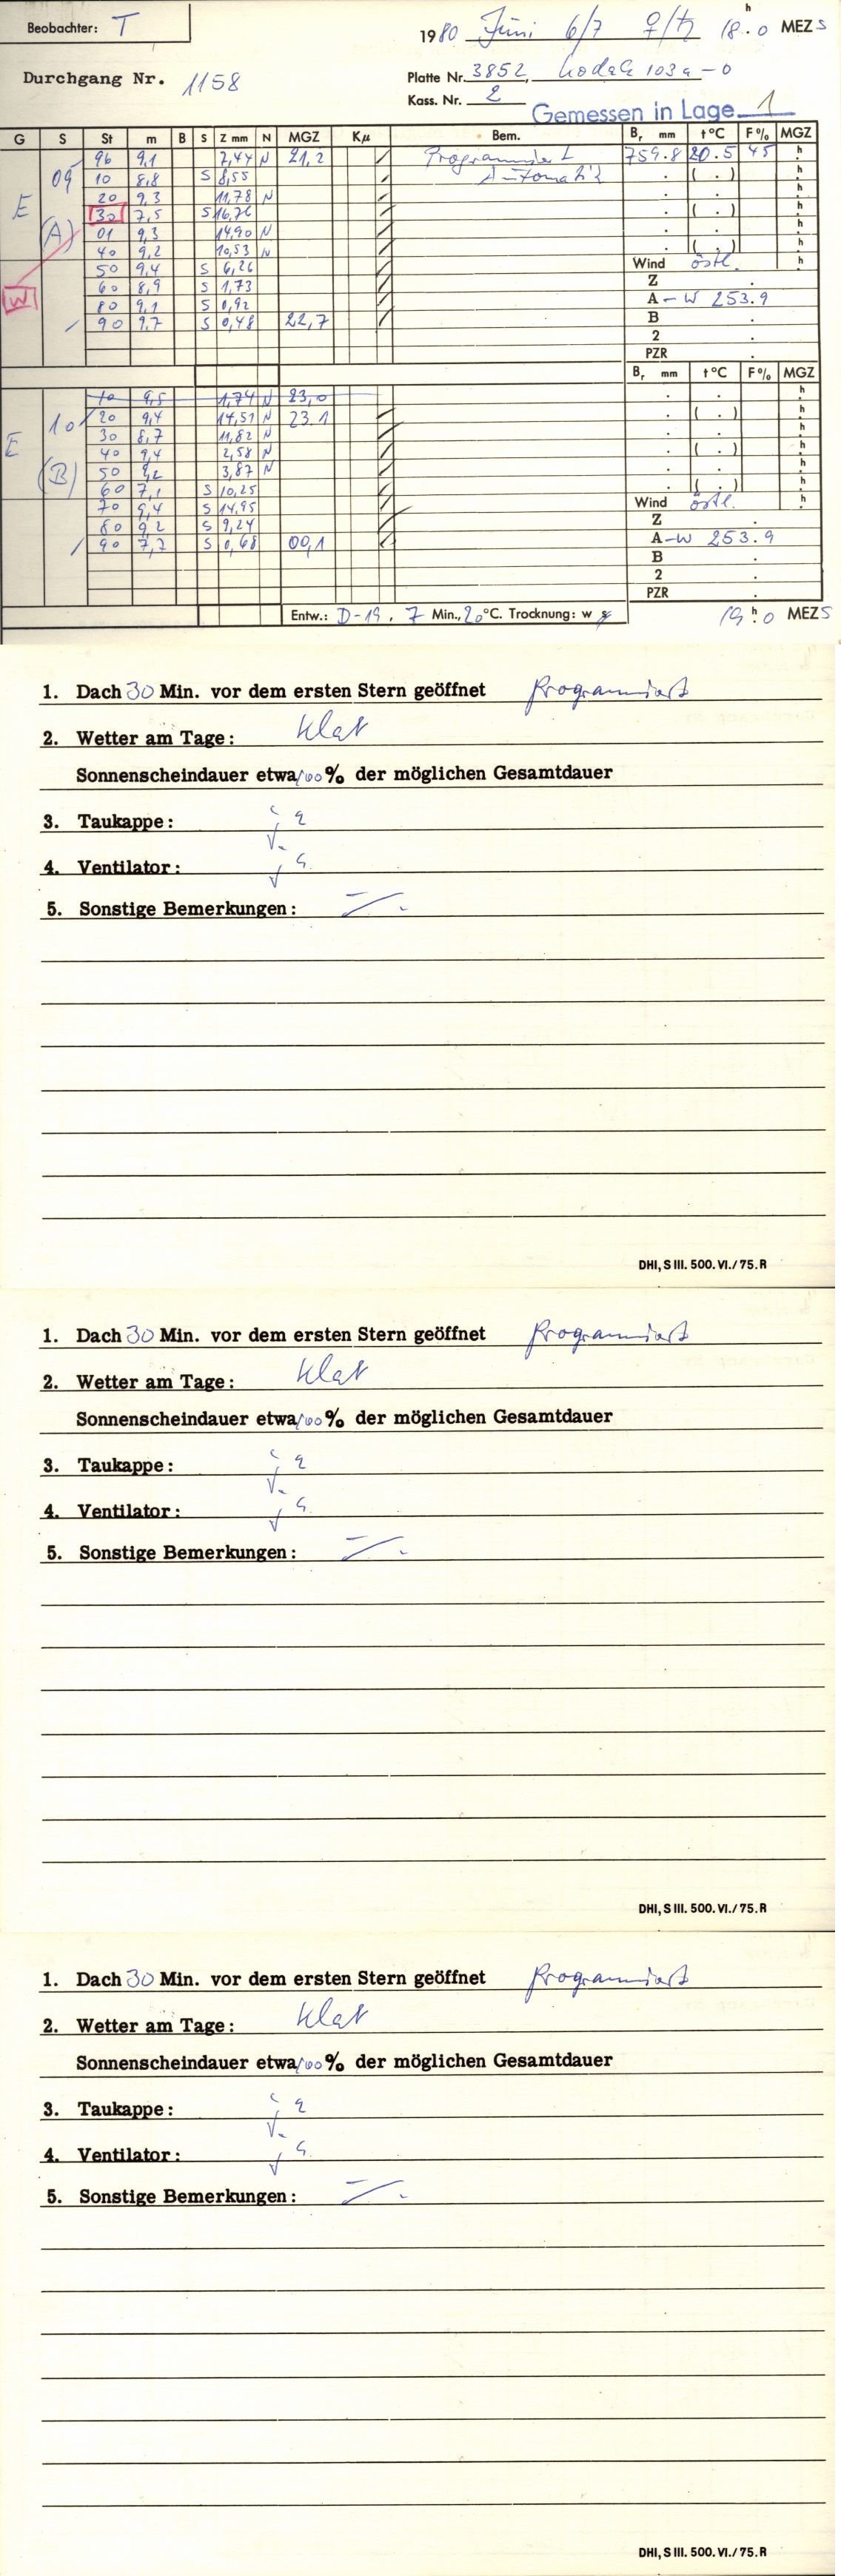 Beobachter: T
1980 Juni 6/7 ♀/♄ 18h.0 MEZS
Durchgang Nr. 1158
Platte Nr. 3852, Kodak 103a-0
Kass. Nr. 2
Gemessen in Lage 1
G S St m B S Z mm N MGZ Kμ Bem. Br mm t°C F% MGZ
96 9,1 7,44 N 21,2 Programmiert 759.8 20.5 45 h
E 09 10 8,8 S 8,55 Automatik . ( . )
20 9,3 11,78 N . . h
30 7,5 S 16,76 . ( . ) h
(A) 01 9,3 14,90 N . . h
40 9,2 10,53 N . ( . ) h
50 9,4 S 6,26 Wind östl. h
W 60 8,9 S 1,73 Z .
80 9,1 S 0,92 A-W 253.9
90 9,7 S 0,48 22,7 B .
2 .
PZR .
Br mm t°C F% MGZ
10 9,5 1,74 N 23,0 . . h
10 20 9,4 14,51 N 23.1 . ( . ) h
E 30 8,7 11,82 N . . h
40 9,4 2,58 N . ( . ) h
(B) 50 9,2 3,87 N . . h
60 7,1 S 10,25 . ( . ) h
70 9,4 S 14,95 Wind östl.
80 9,2 S 9,24 Z .
90 7,7 S 0,68 00,1 A-W 253.9
B .
2 .
PZR .
Entw.: D-19, 7 Min., 20°C. Trocknung: w 19h.0 MEZS
1. Dach 30 Min. vor dem ersten Stern geöffnet Programmiert
2. Wetter am Tage: klar
Sonnenscheindauer etwa 100% der möglichen Gesamtdauer
3. Taukappe: ja
4. Ventilator: ja
5. Sonstige Bemerkungen: -/-
DHI, S III. 500. VI./75.R
1. Dach 30 Min. vor dem ersten Stern geöffnet Programmiert
2. Wetter am Tage: klar
Sonnenscheindauer etwa 100% der möglichen Gesamtdauer
3. Taukappe: ja
4. Ventilator: ja
5. Sonstige Bemerkungen: -/-
DHI, S III. 500. VI./75.R
1. Dach 30 Min. vor dem ersten Stern geöffnet Programmiert
2. Wetter am Tage: klar
Sonnenscheindauer etwa 100% der möglichen Gesamtdauer
3. Taukappe: ja
4. Ventilator: ja
5. Sonstige Bemerkungen: -/-
DHI, S III. 500. VI./75.R